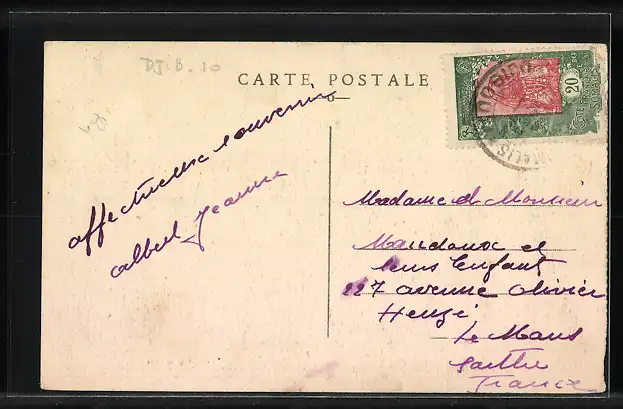 DJ B. 10
CARTE POSTALE
20
affectueux souvenir
albert Jeanne
Madame et Monsieur
et
leurs Enfant
227 avenue Olivier
Heuzé
Le Mans
Sarthe
France